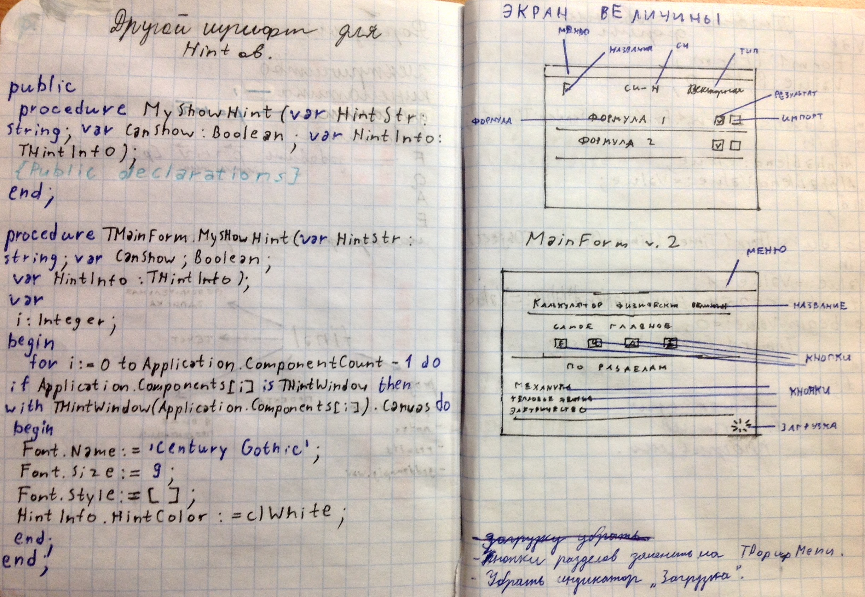 Другой шрифт для
Hint ов.
public
procedure MyShowHint (var HintStr:
string; var CanShow: Boolean; var HintInfo:
THintInfo);
{Public declarations}
end;
procedure TMainForm.MyShowHint(var HintStr:
string; var CanShow; Boolean;
var HintInfo: THintInfo);
var
i: Integer;
begin
for i:= 0 to Application.ComponentCount - 1 do
if Application.Components[i] is THintWindow then
with THintWindow(Application.Components[i]).Canvas do
begin
Font.Name:= 'Century Gothic';
Font.Size:= 9;
Font.Style:= [ ];
HintInfo.HintColor:= clWhite;
end;
end;
ЭКРАН ВЕЛИЧИНЫ
МЕНЮ
НАЗВАНИЕ
СИ
ТИП
СИ-Н
Векторная
РЕЗУЛЬТАТ
ФОРМУЛА
ФОРМУЛА 1
ИМПОРТ
ФОРМУЛА 2
MainForm v. 2
МЕНЮ
Калькулятор физических величин
НАЗВАНИЕ
САМОЕ ГЛАВНОЕ
КНОПКИ
ПО РАЗДЕЛАМ
МЕХАНИКА
КНОПКИ
ТЕПЛОВЫЕ ЯВЛЕНИЯ
ЭЛЕКТРИЧЕСТВО
ЗАГРУЗКА
- Загрузку убрать
- Кнопки разделов заменить на TPopupMenu.
- Убрать индикатор „Загрузка".